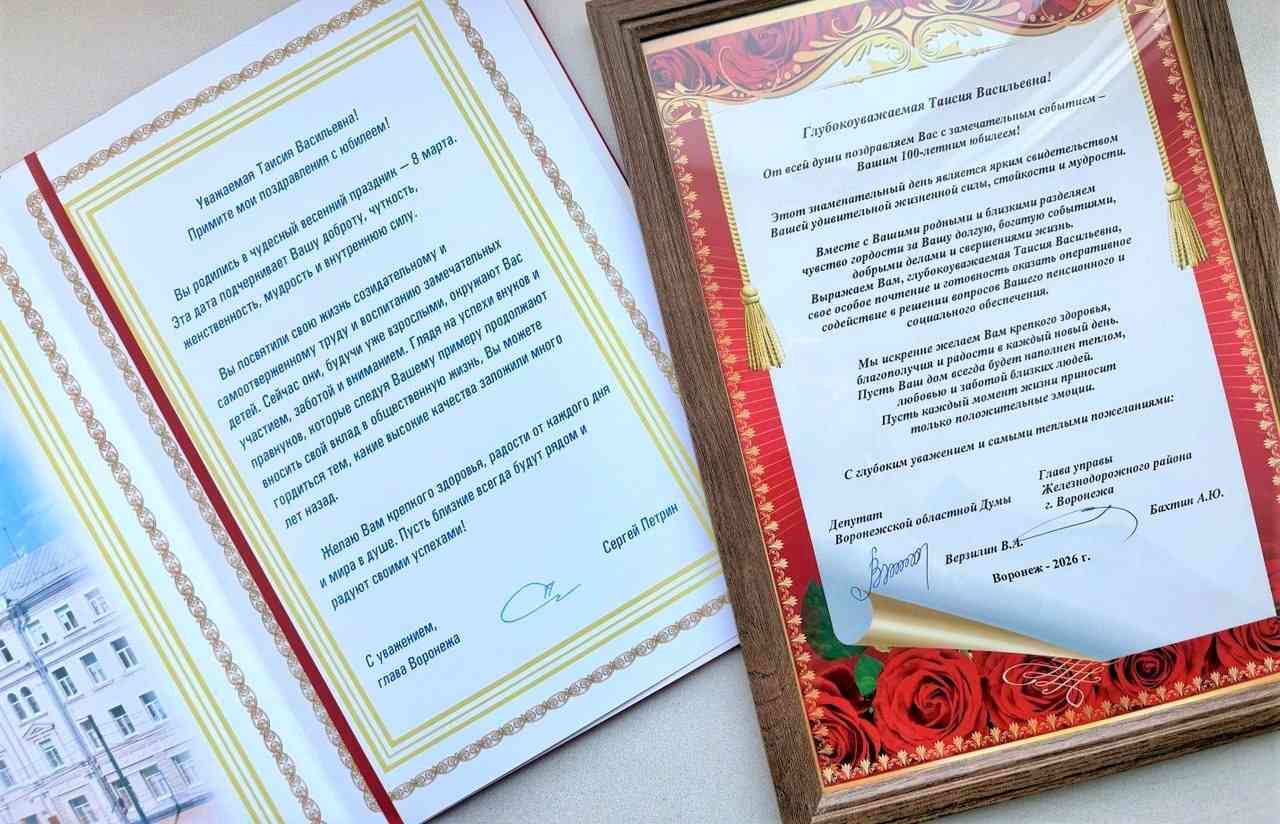 Уважаемая Таисия Васильевна!
Примите мои поздравления с юбилеем!
Вы родились в чудесный весенний праздник – 8 марта.
Эта дата подчеркивает Вашу доброту, чуткость,
женственность, мудрость и внутреннюю силу.
Вы посвятили свою жизнь созидательному и
самоотверженному труду и воспитанию замечательных
детей. Сейчас они, будучи уже взрослыми, окружают Вас
участием, заботой и вниманием. Глядя на успехи внуков и
правнуков, которые следуя Вашему примеру продолжают
вносить свой вклад в общественную жизнь, Вы можете
гордиться тем, какие высокие качества заложили много
лет назад.
Желаю Вам крепкого здоровья, радости от каждого дня
и мира в душе. Пусть близкие всегда будут рядом и
радуют своими успехами!
С уважением,
глава Воронежа
Сергей Петрин
Глубокоуважаемая Таисия Васильевна!
От всей души поздравляем Вас с замечательным событием –
Вашим 100-летним юбилеем!
Этот знаменательный день является ярким свидетельством
Вашей удивительной жизненной силы, стойкости и мудрости.
Вместе с Вашими родными и близкими разделяем
чувство гордости за Вашу долгую, богатую событиями,
добрыми делами и свершениями жизнь.
Выражаем Вам, глубокоуважаемая Таисия Васильевна,
свое особое почтение и готовность оказать оперативное
содействие в решении вопросов Вашего пенсионного и
социального обеспечения.
Мы искренне желаем Вам крепкого здоровья,
благополучия и радости в каждый новый день.
Пусть Ваш дом всегда будет наполнен теплом,
любовью и заботой близких людей.
Пусть каждый момент жизни приносит
только положительные эмоции.
С глубоким уважением и самыми теплыми пожеланиями:
Депутат
Воронежской областной Думы
Верзилин В.А.
Глава управы
Железнодорожного района
г. Воронежа
Бахтин А.Ю.
Воронеж - 2026 г.